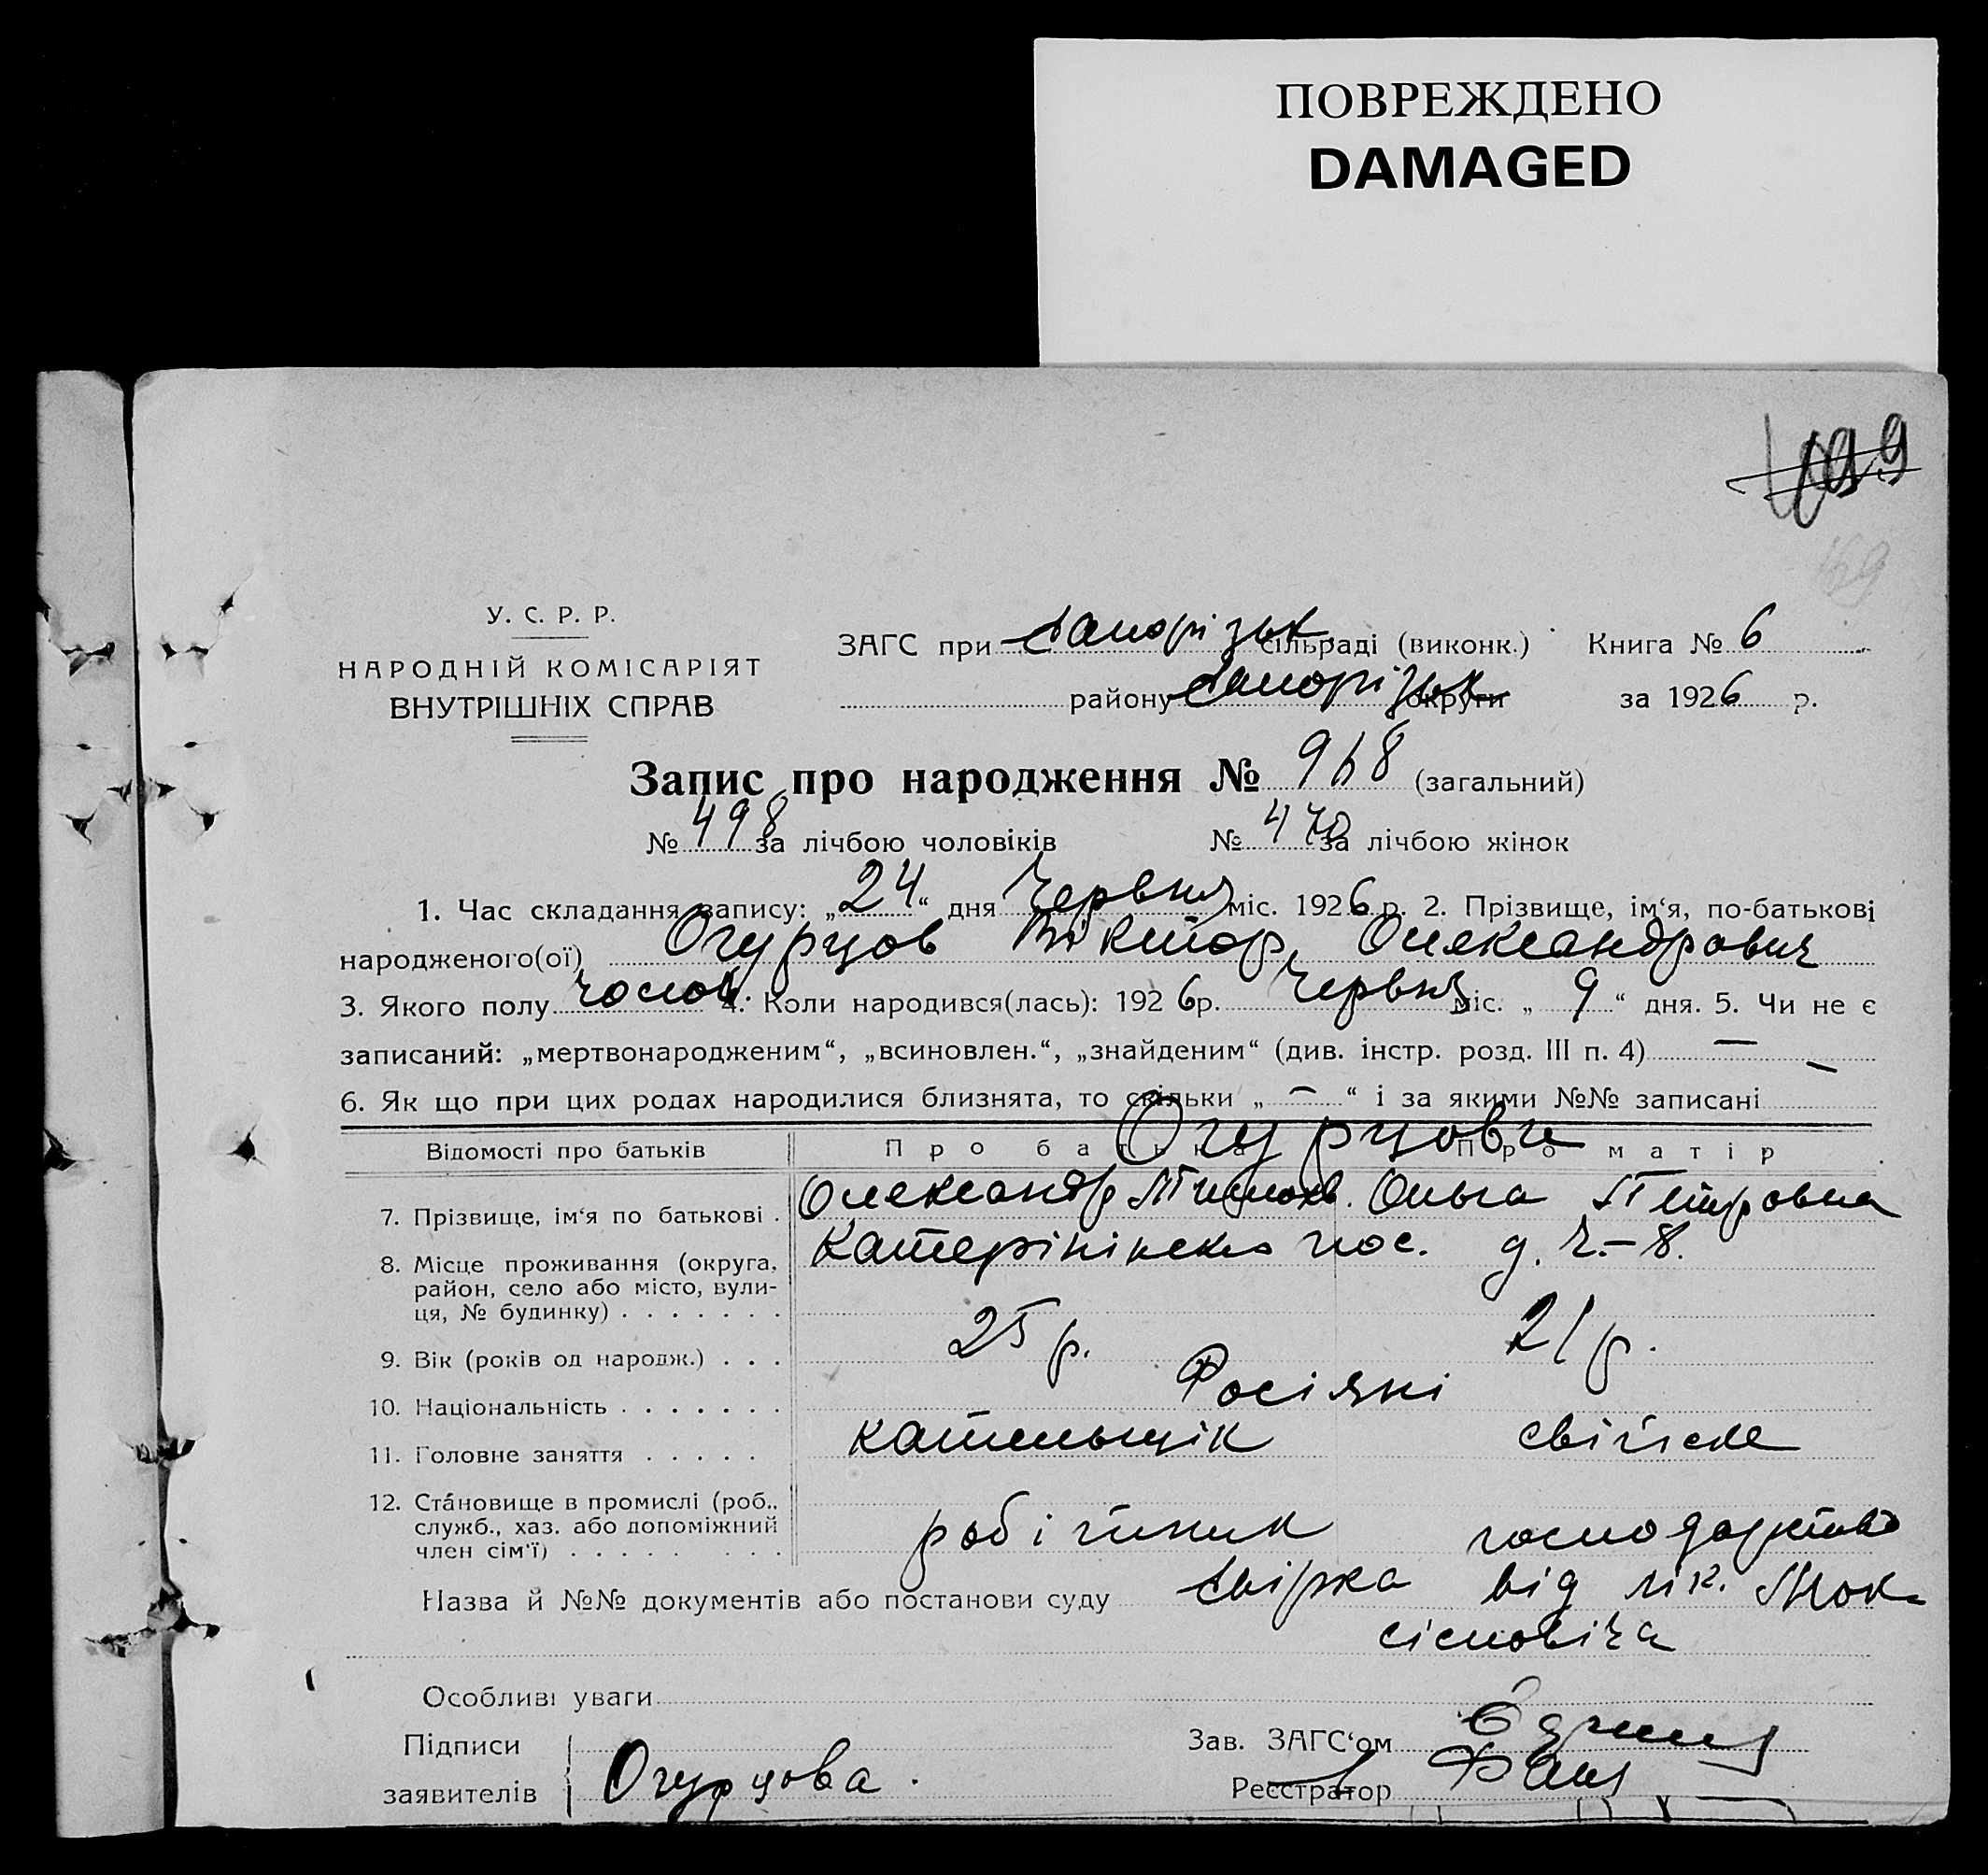 ПОВРЕЖДЕНО
DAMAGED
У. С. Р. Р.
НАРОДНІЙ КОМІСАРІЯТ
ВНУТРІШНІХ СПРАВ
ЗАГС при Запорізьк. сільраді (виконк.) Книга № 6
району Запорізьк округи за 1926 р.
Запис про народження № 968 (загальний)
№ 498 за лічбою чоловіків № 470 за лічбою жінок
1. Час складання запису: „24“ дня Червня міс. 1926 р. 2. Прізвище, ім‘я, по-батькові
народженого(ої) Огурцов Віктор Олександрович
3. Якого полу чолов. 4. Коли народився(лась): 1926 р. Червня міс. „9“ дня. 5. Чи не є
записаний: „мертвонародженим“, „всиновлен.“, „знайденим“ (див. інстр. розд. III п. 4) —
6. Як що при цих родах народилися близнята, то скільки „—“ і за якими №№ записані —
Відомості про батьків Про батька Про матір
Огурцови
7. Прізвище, ім‘я по батькові . Олександр Тимохв. Ольга Петровна
8. Місце проживання (округа, район, село або місто, вулиця, № будинку) . . . . . . . Катерінінська пос. д. ч.–8.
9. Вік (років од народж.) . . . 25 р. 21 р.
10. Національність . . . . . . . Росіяні
11. Головне заняття . . . . . катальщік свійське
12. Становище в промислі (роб., служб., хаз. або допоміжний член сім‘ї) . . . . . . . . робітник господарство
Назва й №№ документів або постанови суду Звірка від лік. Мок-
сісмовіча
Особливі уваги
Підписи Зав. ЗАГС‘ом
заявителів Огурцова. Реєстратор